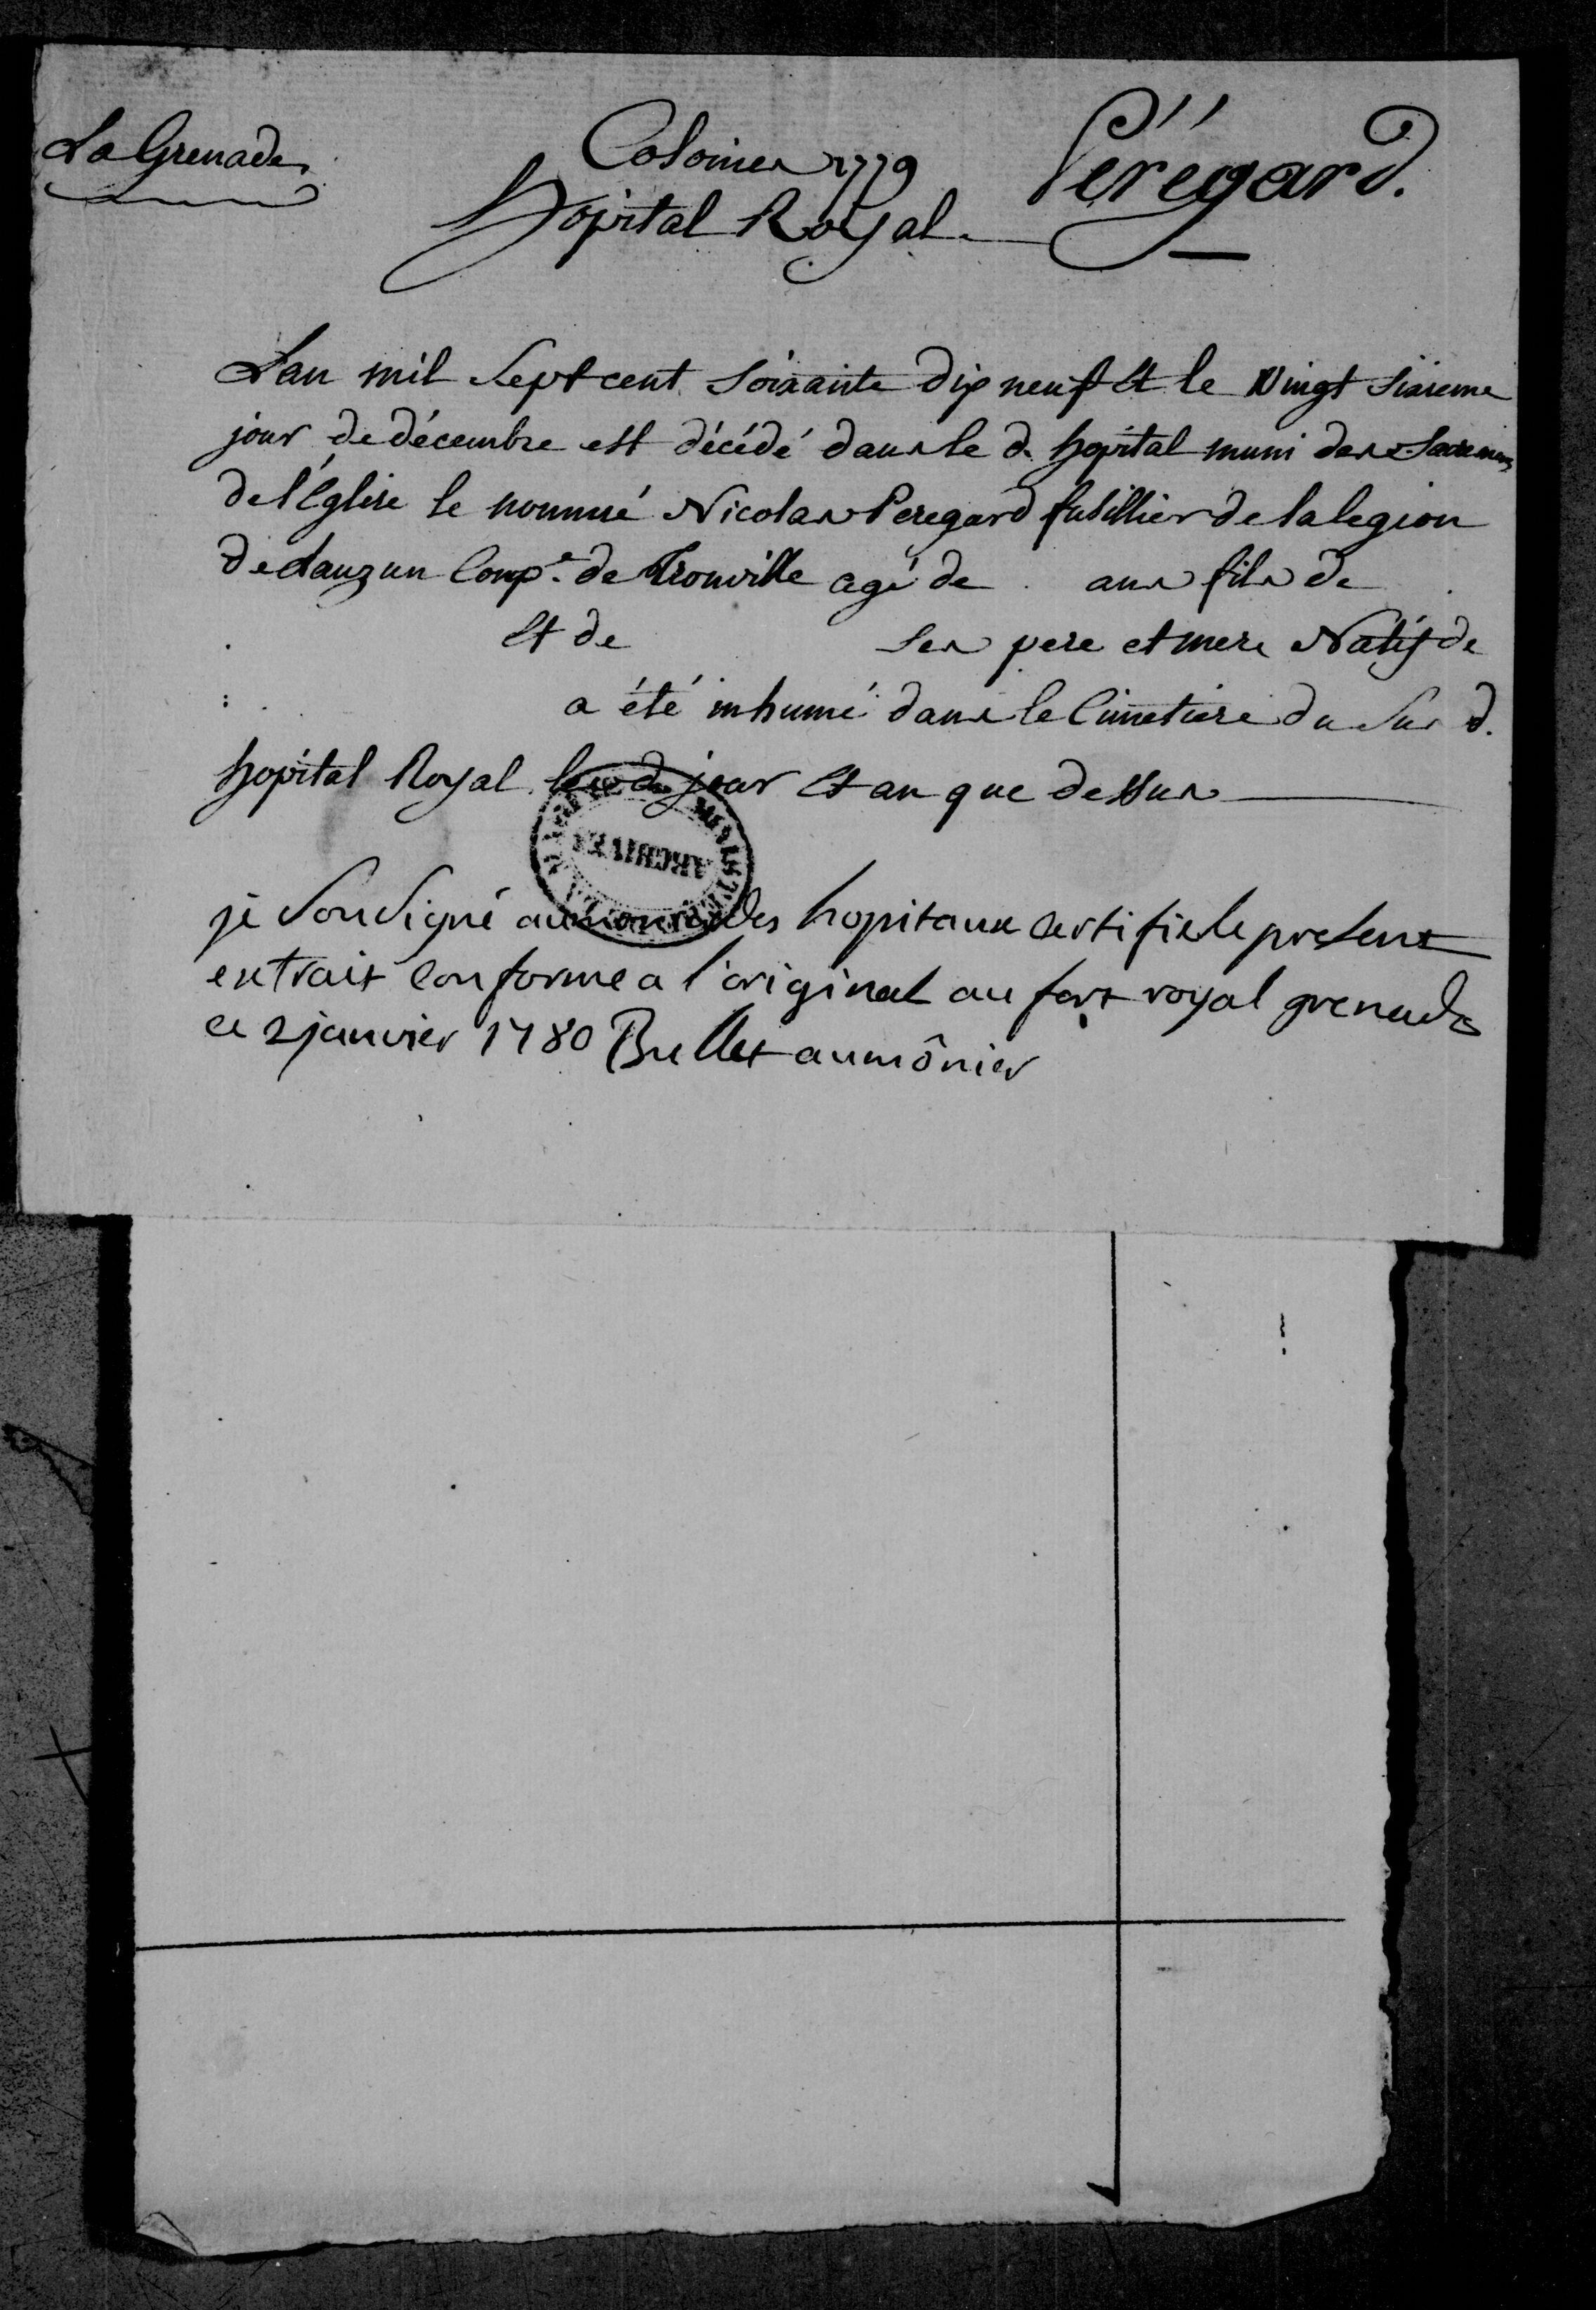 La Grenade
Colonies 1779
Pérégard.
hôpital Royal
L'an mil Sept cent Soixante dix neuf Et le Vingt Sixieme
jour de décembre est décédé dans le d. hopital muni des Sacremens
de l'Église le nommé Nicolas Peregard fusillier de la legion
de Lauzun Comp.e de Tronville agé de ans fils de
Et de Ses pere et mere Natif de
a été inhumé dans le Cimetiere du Sus d.
hopital Royal les d. jour Et an que dessus
je Sousigné aumonier des hopitaux certifie le present
extrait conforme a l'original au fort royal grenade
ce 2 janvier 1780 Bullet aumônier
ARCHIVES